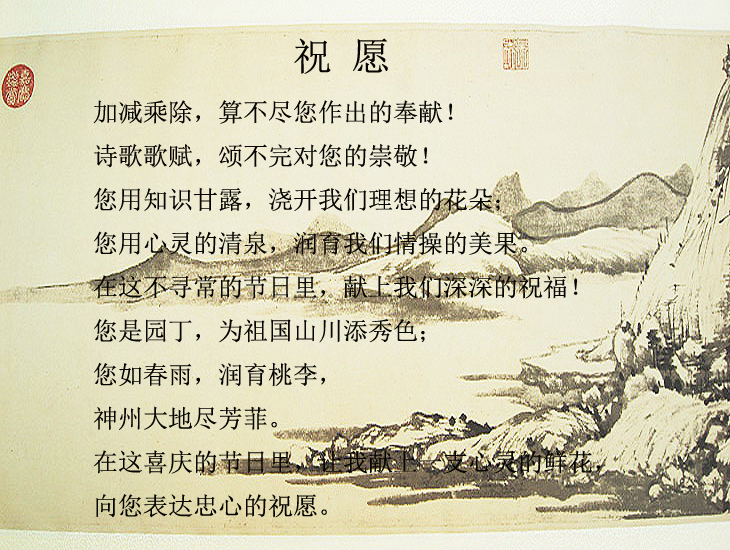 祝 愿
加减乘除，算不尽您作出的奉献！
诗歌歌赋，颂不完对您的崇敬！
您用知识甘露，浇开我们理想的花朵；
您用心灵的清泉，润育我们情操的美果。
在这不寻常的节日里，献上我们深深的祝福！
您是园丁，为祖国山川添秀色；
您如春雨，润育桃李，
神州大地尽芳菲。
在这喜庆的节日里，让我献上一支心灵的鲜花，
向您表达忠心的祝愿。